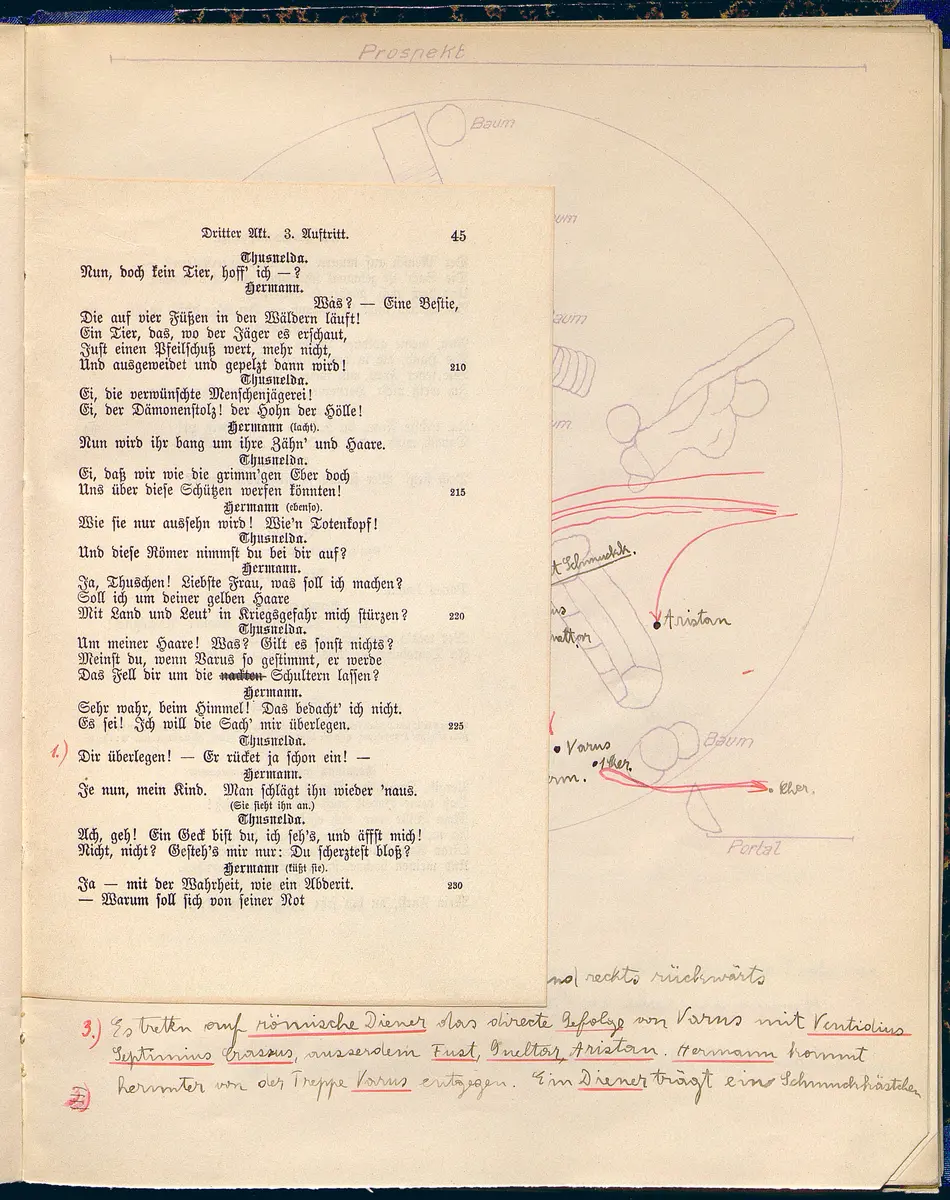 Prospekt
Baum
um
aum
um
Dritter Akt. 3. Auftritt. 45
Thusnelda.
Nun, doch kein Tier, hoff' ich — ?
Hermann.
Was? — Eine Bestie,
Die auf vier Füßen in den Wäldern läuft!
Ein Tier, das, wo der Jäger es erschaut,
Just einen Pfeilschuß wert, mehr nicht,
Und ausgeweidet und gepelzt dann wird! 210
Thusnelda.
Ei, die verwünschte Menschenjägerei!
Ei, der Dämonenstolz! der Hohn der Hölle!
Hermann (lacht).
Nun wird ihr bang um ihre Zähn' und Haare.
Thusnelda.
Ei, daß wir wie die grimm'gen Eber doch
Uns über diese Schützen werfen könnten! 215
Hermann (ebenso).
Wie sie nur aussehn wird! Wie'n Totenkopf!
Thusnelda.
Und diese Römer nimmst du bei dir auf?
Hermann.
Ja, Thuschen! Liebste Frau, was soll ich machen?
Soll ich um deiner gelben Haare
Mit Land und Leut' in Kriegsgefahr mich stürzen? 220
Thusnelda.
Um meiner Haare! Was? Gilt es sonst nichts?
Meinst du, wenn Varus so gestimmt, er werde
Das Fell dir um die nackten Schultern lassen?
Hermann.
Sehr wahr, beim Himmel! Das bedacht' ich nicht.
Es sei! Ich will die Sach' mir überlegen. 225
Thusnelda.
1.) Dir überlegen! — Er rücket ja schon ein! —
Hermann.
Je nun, mein Kind. Man schlägt ihn wieder 'naus.
(Sie sieht ihn an.)
Thusnelda.
Ach, geh! Ein Geck bist du, ich seh's, und äffst mich!
Nicht, nicht? Gesteh's mir nur: Du scherztest bloß?
Hermann (küßt sie).
Ja — mit der Wahrheit, wie ein Abderit. 230
— Warum soll sich von seiner Not
t Schmuckk.
us
Aristan
Varus
Cher.
erm.
Cher.
Baum
Portal
rechts rückwärts
3.) Es treten auf römische Diener das directe Gefolge von Varus mit Ventidius
Septimius Crassus, ausserdem Fust, Gueltar, Aristan. Hermann kommt
herunter von der Treppe Varus entgegen. Ein Diener trägt ein Schmuckkästchen